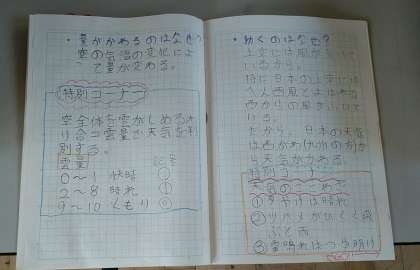 ・量がかわるのはなぜ?
空の気温の変化によ
って量が変わる。
特別コーナー
空全体を雲がしめるわ
り合コ雲量で天気を判
別する。
雲量 記号
0〜1 快晴 ○
2〜8 晴れ
9〜10 くもり ◎
・動くのはなぜ?
上空には風がふいて
いるから。
特に日本の上空には
へん西風とよばれる
西からの風がふいて
いる。
だから、日本の天気
は西から東の方か
ら天気がかわる。
特別コーナー
天気のことわざ
①夕やけは晴れ
②ツバメがひくく飛
ぶと雨
③